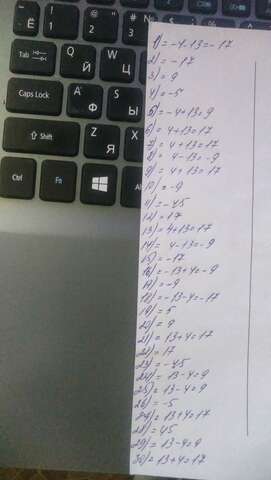 Tab
Q Й
Caps Lock
A Ф
S Ы
Shift
Z Я
X
Ctrl
Fn
1) = -4-13=-17
2) = -17
3) = 9
4) = -5
5) = -4+13=9
6) = 4+13=17
7) = 4+13=17
8) = 4-13=-9
9) = 4+13=17
10) = -9
11) = -45
12) = 17
13) = 4+13=17
14) = 4-13=-9
15) = -17
16) = -13+4=-9
17) = -9
18) = -13-4=-17
19) = 5
20) = 9
21) = 13+4=17
22) = 17
23) = -45
24) = 13-4=9
25) = 13-4=9
26) = -5
27) = 13+4=17
28) = 45
29) = 13-4=9
30) = 13+4=17